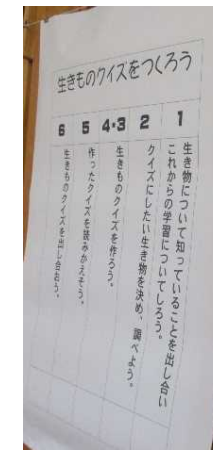 生きものクイズをつくろう
1
生き物について知っていることを出し合い
これからの学習についてしろう。
2
クイズにしたい生き物を決め、調べよう。
4・3
生きものクイズを作ろう。
5
作ったクイズを読みかえそう。
6
生きものクイズを出し合おう。